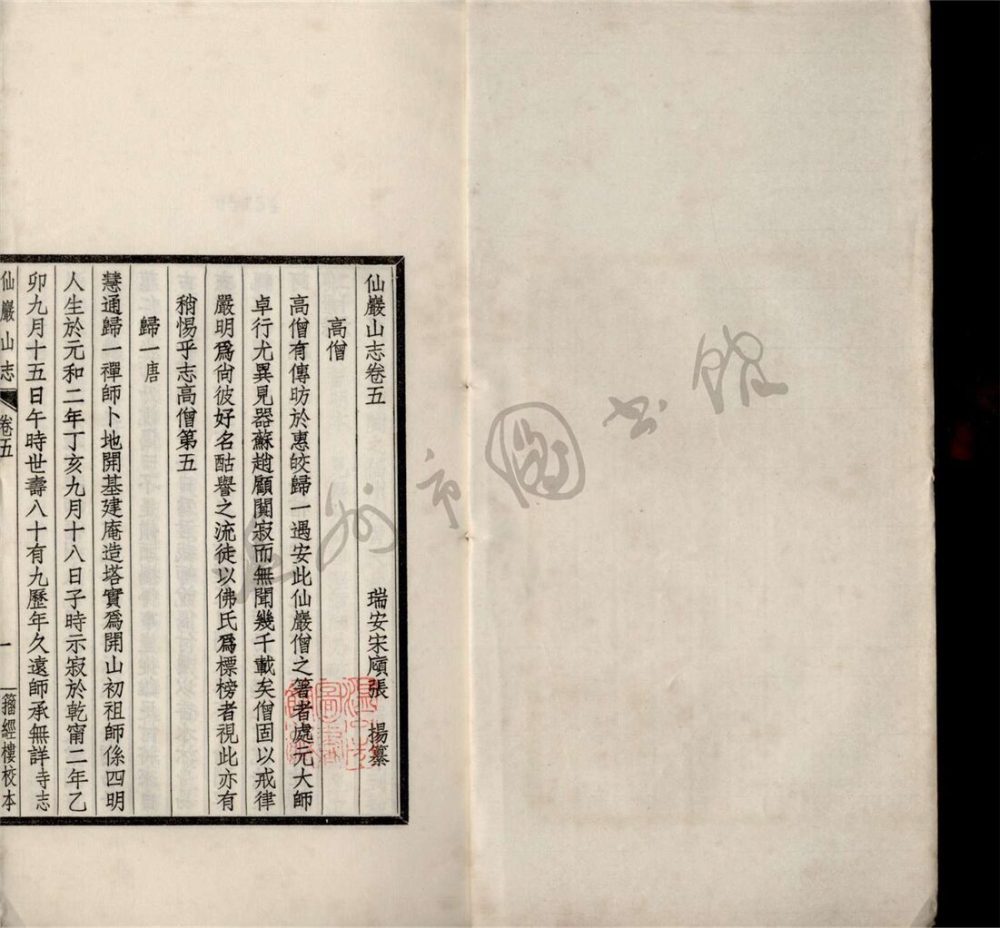 仙巖山志卷五 瑞安宋廎張 楊纂
高僧
高僧有傳昉於惠皎歸一遇安此仙巖僧之著者處元大師
卓行尤異見器蘇趙顧闃寂而無聞幾千載矣僧固以戒律
嚴明爲尙彼好名酤譽之流徒以佛氏爲標榜者視此亦有
稍惕乎志高僧第五
歸一唐
慧通歸一禪師卜地開基建庵造塔實爲開山初祖師係四明
人生於元和二年丁亥九月十八日子時示寂於乾甯二年乙
卯九月十五日午時世壽八十有九歷年久遠師承無詳寺志
仙巖山志 卷五 一 籀經樓校本
州市圖書館